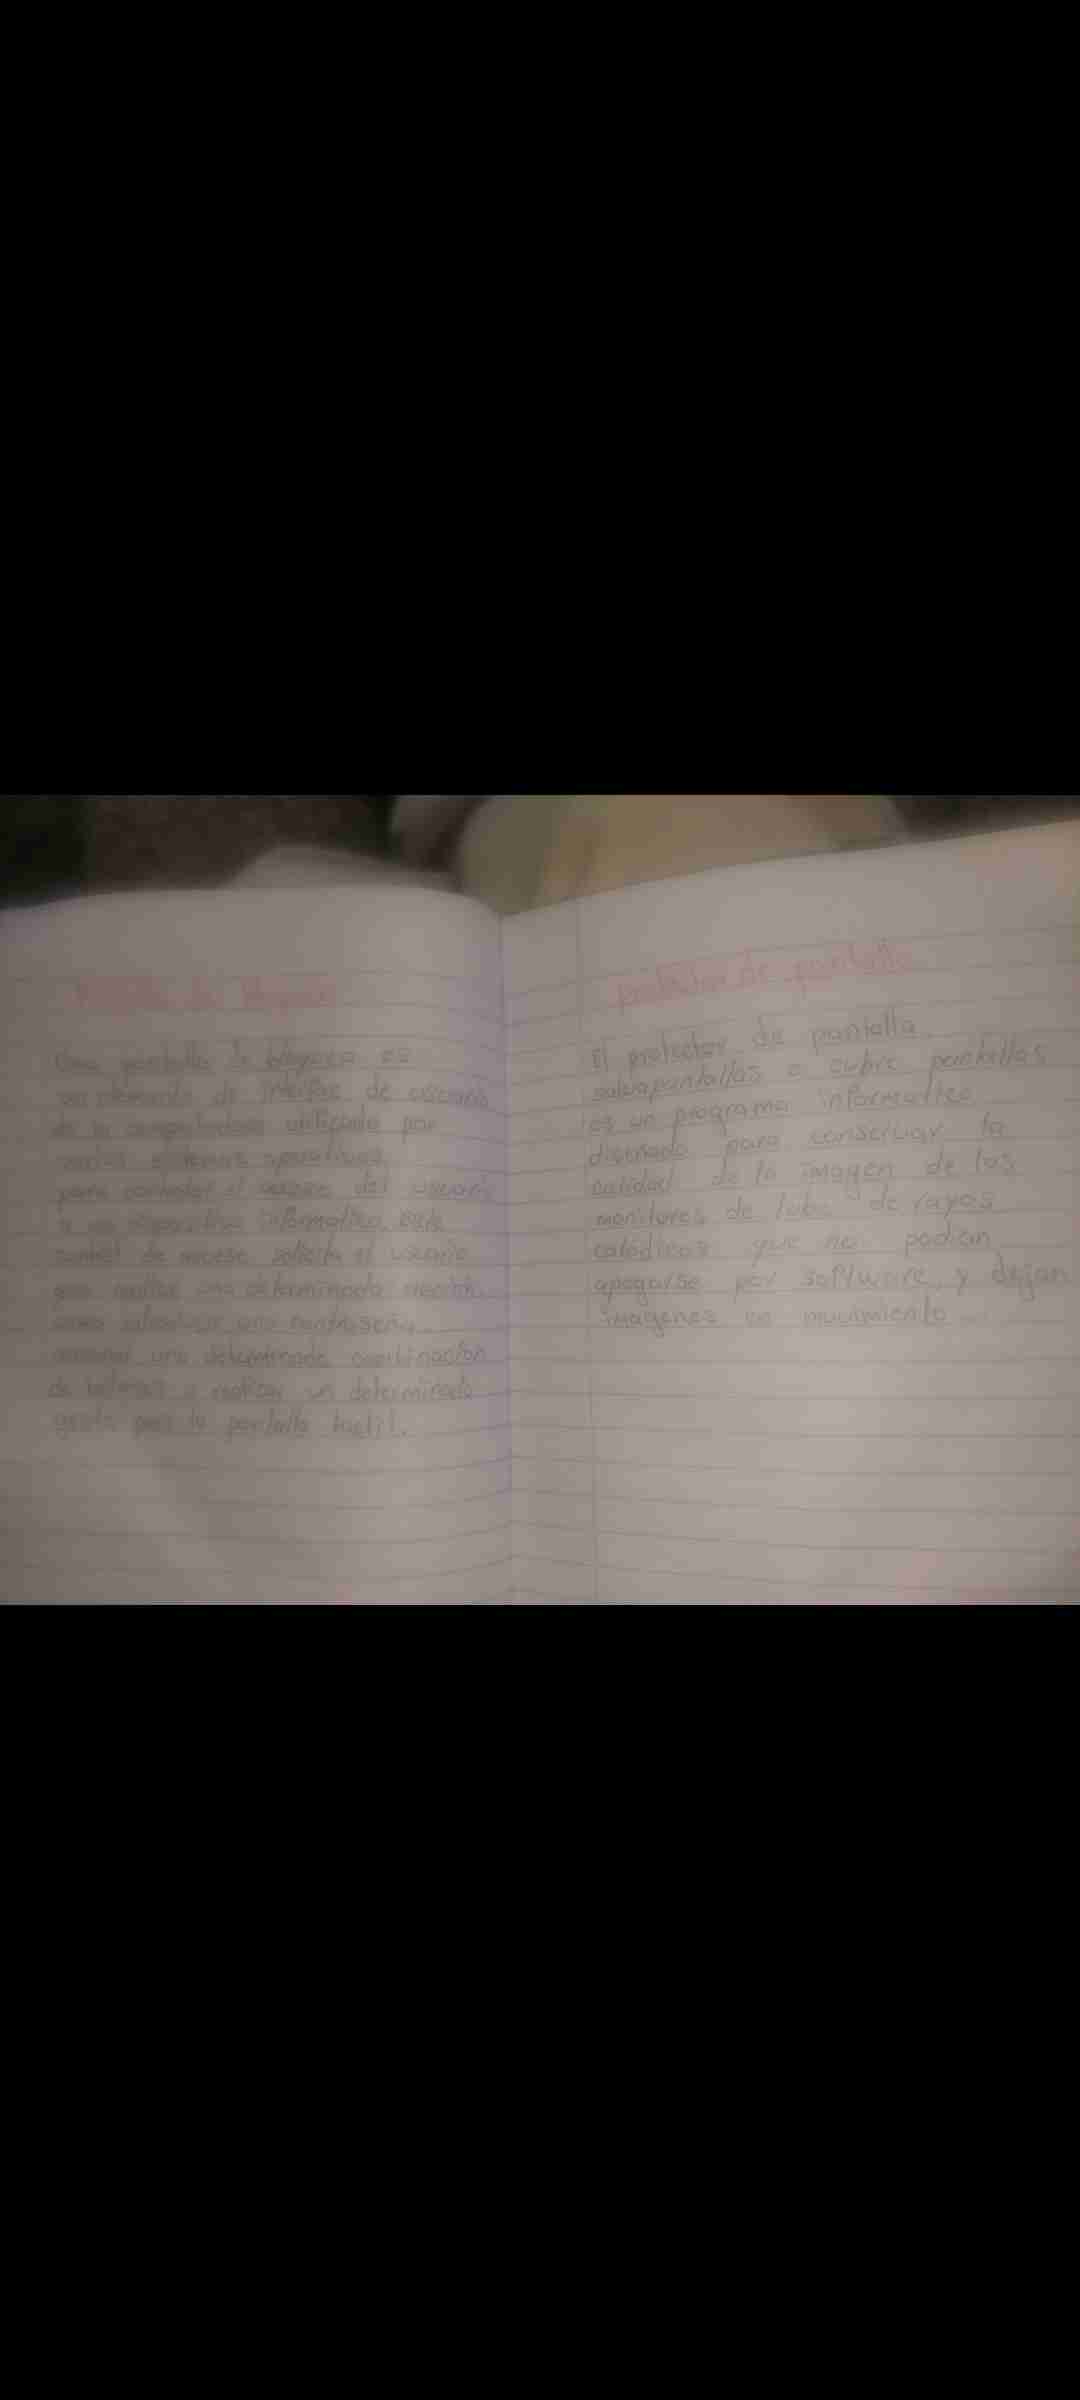 Pantalla de bloqueo
Una pantalla de bloqueo es
un elemento de interfaz de usuario
de la computadora utilizado por
varios sistemas operativos
para controlar el acceso del usuario
a un dispositivo informatico, este
control de acceso solicita al usuario
que realice una determinada
como introducir una contraseña
una determinada combinación
de botones o realizar un determinado
gesto por la pantalla tactil.
protector de pantalla
El protector de pantalla,
salvapantallas o cubre pantallas
es un programa informatico
diseñado para conservar la
calidad de la imagen de los
monitores de tubo de rayos
catódicos que no podian
apagarse por software, y dejan
imagenes en movimiento